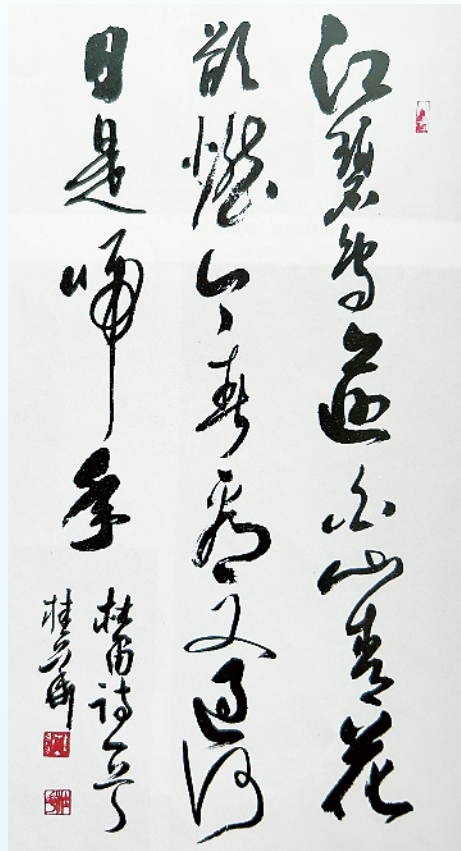 江碧鳥逾白山青花
欲燃今春看又過何
日是歸年
杜甫詩一首
桂